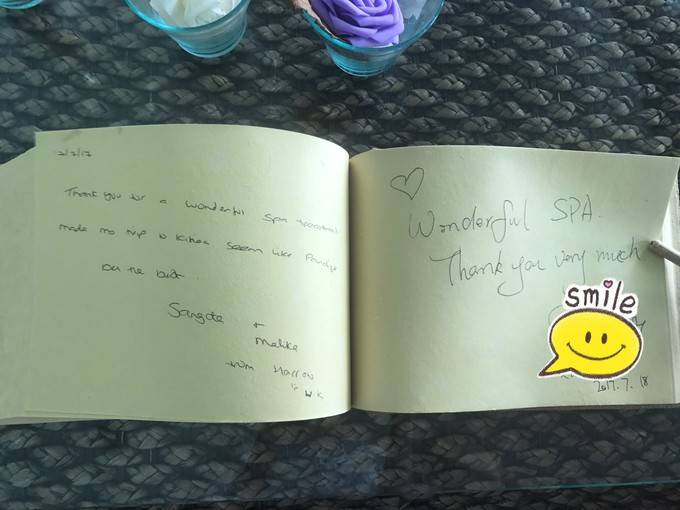 2/7/17
Thank you for a wonderful spa treatment
made my trip to seem like Paradise
on the
+
Malika
from Harrow
UK
Wonderful SPA.
Thank you very much
smile
2017.7.18